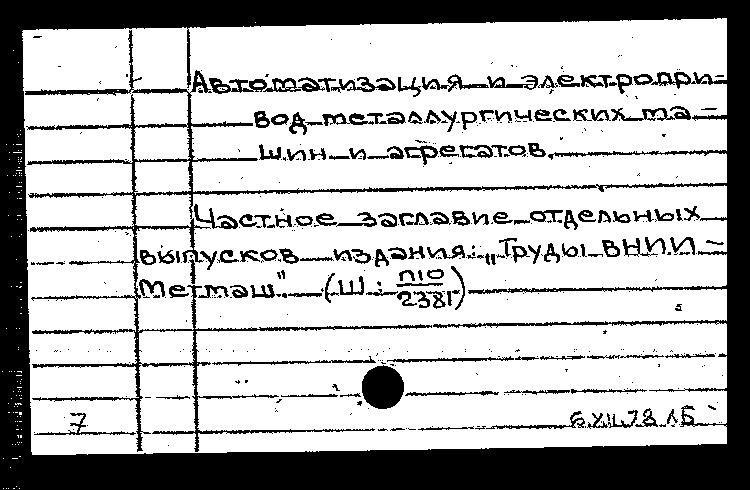 Автоматизация и электропри-
вод металлургических ма-
шин и агрегатов.
Частное заглавие отдельных
выпусков издания: „Труды ВНИИ-
Метмаш". (Ш: П10/2381)
7
6.XII.78 ЛБ